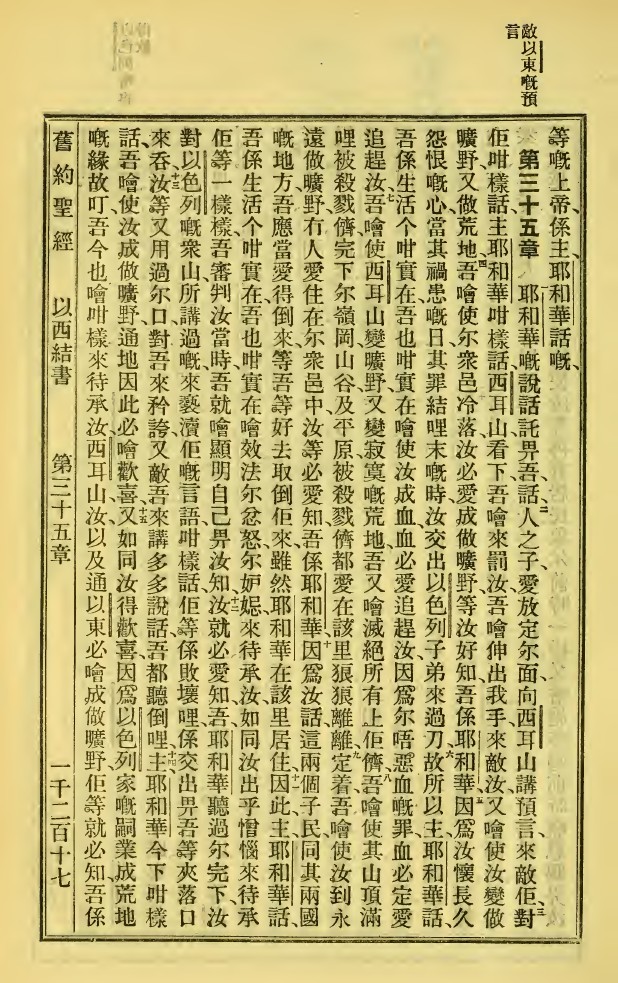 敵以東嘅預
言
等嘅上帝係主耶和華話嘅、
第三十五章　耶和華嘅說話託畀吾話、二人之子愛放定尔面向西耳山講預言來敵佢、三對
佢咁樣話主耶和華咁樣話西耳山看下吾噲來罰汝吾噲伸出我手來敵汝又噲使汝變做
曠野又做荒地、四吾噲使尔衆邑冷落汝必愛成做曠野等汝好知吾係耶和華、五因爲汝懷長久
怨恨嘅心當其禍患嘅日其罪結哩末嘅時汝交出以色列子弟來過刀、六故所以主耶和華話、
吾係生活个咁實在吾也咁實在噲使汝成血血必愛追趕汝因爲尔唔惡血嘅罪血必定愛
追趕汝、七吾噲使西耳山變曠野又變寂寞嘅荒地吾又噲滅絕所有上佢儕、八吾噲使其山頂滿
哩被殺戮儕完下尔嶺岡山谷及平原被殺戮儕都愛在該里狠狠離離定着、九吾噲使汝到永
遠做曠野冇人愛住在尔衆邑中汝等必愛知吾係耶和華、十因爲汝話這兩個子民同其兩國
嘅地方吾應當愛得倒來等吾等好去取倒佢來雖然耶和華在該里居住、十一因此主耶和華話、
吾係生活个咁實在吾也咁實在噲效法尔忿怒尔妒𡞋來待承汝如同汝出乎憎惱來待承
佢等一樣樣吾審判汝當時吾就噲顯明自己畀汝知、十二汝就必愛知吾耶和華聽過尔完下汝
對以色列嘅衆山所講過嘅來褻瀆佢嘅言語咁樣話佢等係敗壞哩係交出畀吾等夾落口
來呑、十三汝等又用過尔口對吾來矜誇又敵吾來講多多說話吾都聽倒哩、十四主耶和華今下咁樣
話吾噲使汝成做曠野通地因此必噲歡喜、十五又如同汝得歡喜因爲以色列家嘅嗣業成荒地
嘅緣故叮吾今也噲咁樣來待承汝西耳山汝以及通以東必噲成做曠野佢等就必知吾係
舊約聖經　以西結書　第三十五章　一千二百十七